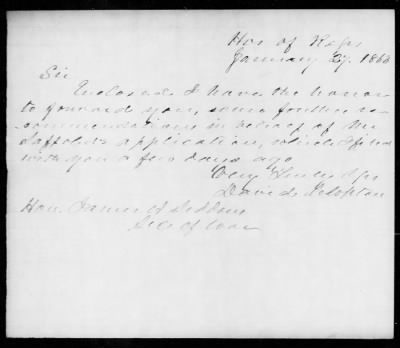 Ho of Reps
January 27. 1863
Sir
Enclosed I have the honor
to forward you, some further re-
-commendations in behalf of Mr
Saffold's application, which I filed
with you a few days ago
Very Truly Yrs
David Clopton
Hon. James A Seddon
Sec of War